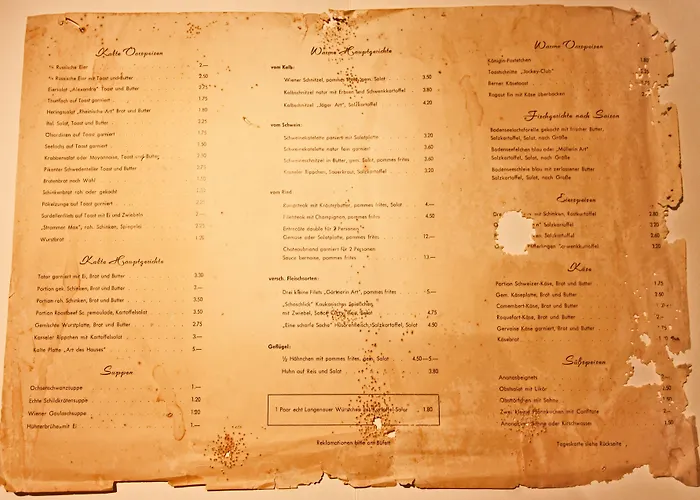 Kalte Vorspeisen
⁴/₂ Russische Eier 2.—
⁴/₂ Russische Eier mit Toast und Butter 2.50
Eiersalat „Alexandra" Toast und Butter 2.75
Thunfisch auf Toast garniert 1.75
Heringssalat „Rheinische-Art" Brot und Butter 1.90
Ital. Salat, Toast und Butter 2.25
Ölsardinen auf Toast garniert 1.75
Seelachs auf Toast garniert 1.50
Krabbensalat oder Mayonnaise, Toast und Butter
Pikanter Schwedenteller Toast und Butter
Bratenbrot nach Wahl
Schinkenbrot roh oder gekocht
Pökelzunge auf Toast garniert
Sardellenfilets auf Toast mit Ei und Zwiebeln 2.—
„Strammer Max", roh. Schinken, Spiegelei
Wurstbrot
Kalte Hauptgerichte
Tatar garniert mit Ei, Brot und Butter 3.30
Portion gek. Schinken, Brot und Butter 3.—
Portion roh. Schinken, Brot und Butter 3.50
Portion Roastbeef Sc. remoulade, Kartoffelsalat 3.50
Gemischte Wurstplatte, Brot und Butter 2.75
Kasseler Rippchen mit Kartoffelsalat 3.—
Kalte Platte „Art des Hauses" 5.—
Suppen
Ochsenschwanzsuppe 1.—
Echte Schildkrötensuppe 1.20
Wiener Gulaschsuppe 1.20
Hühnerbrühe mit Ei 1.—
Warme Hauptgerichte
vom Kalb:
Wiener Schnitzel, pommes frites, gem. Salat 3.50
Kalbschnitzel natur mit Erbsen und Schwenkkartoffel 3.80
Kalbschnitzel „Jäger Art", Salzkartoffel 4.20
vom Schwein:
Schweinekotelette paniert mit Salatplatte 3.20
Schweinekotelette natur fein garniert 3.60
Schweineschnitzel in Butter, gem. Salat, pommes frites 3.60
Kasseler Rippchen, Sauerkraut, Salzkartoffel 3.20
vom Rind:
Rumpsteak mit Kräuterbutter, pommes frites, Salat 4.—
Filetsteak mit Champignon, pommes frites 4.50
Entrecôte double für 2 Personen
Gemüse oder Salatplatte, pommes frites 12.—
Chateaubriand garniert für 2 Personen
Sauce bernaise, pommes frites 13.—
versch. Fleischsorten:
Drei kleine Filets „Gärtnerin Art", pommes frites 5.—
„Schaschlick" Kaukasisches Spießchen
mit Zwiebel, Salat, Curry Reis, Salat 4.75
„Eine scharfe Sache" Husarenfleisch, Salzkartoffel, Salat 4.50
Geflügel:
½ Hähnchen mit pommes frites, gem. Salat 4.50—5.—
Huhn auf Reis und Salat 3.80
1 Paar echt Langenauer Würstchen mit Kartoffel-Salat 1.80
Reklamationen bitte am Büfett
Warme Vorspeisen
Königin-Pastetchen 1.80
Toastschnitte „Jockey-Club"
Berner Käsetoast
Ragout fin mit Käse überbacken
Fischgerichte nach Saison
Bodenseelachsforelle gekocht mit frischer Butter,
Salzkartoffel, Salat, nach Größe
Bodenseefelchen blau oder „Müllerin Art"
Salzkartoffel, Salat, nach Größe
Bodenseeschleie blau mit zerlassener Butter
Salzkartoffel, Salat, nach Größe
Eierspeisen
mit Schinken, Röstkartoffel 2.80
Salzkartoffel 2.60
Schwenkkartoffel 2.20
Käse
Portion Schweizer-Käse, Brot und Butter 1.75
Gem. Käseplatte, Brot und Butter 2.50
Camembert-Käse, Brot und Butter
Roquefort-Käse, Brot und Butter 2.—
Gervaise Käse garniert, Brot und Butter 1.50
Käsebrot
Süßspeisen
Ananasbeignets
Obstsalat mit Likör 2.50
Obsttörtchen mit Sahne
Zwei kleine Pfannkuchen mit Confitüre 2.—
Ananas mit Sahne oder Kirschwasser 1.50
Tageskarte siehe Rückseite